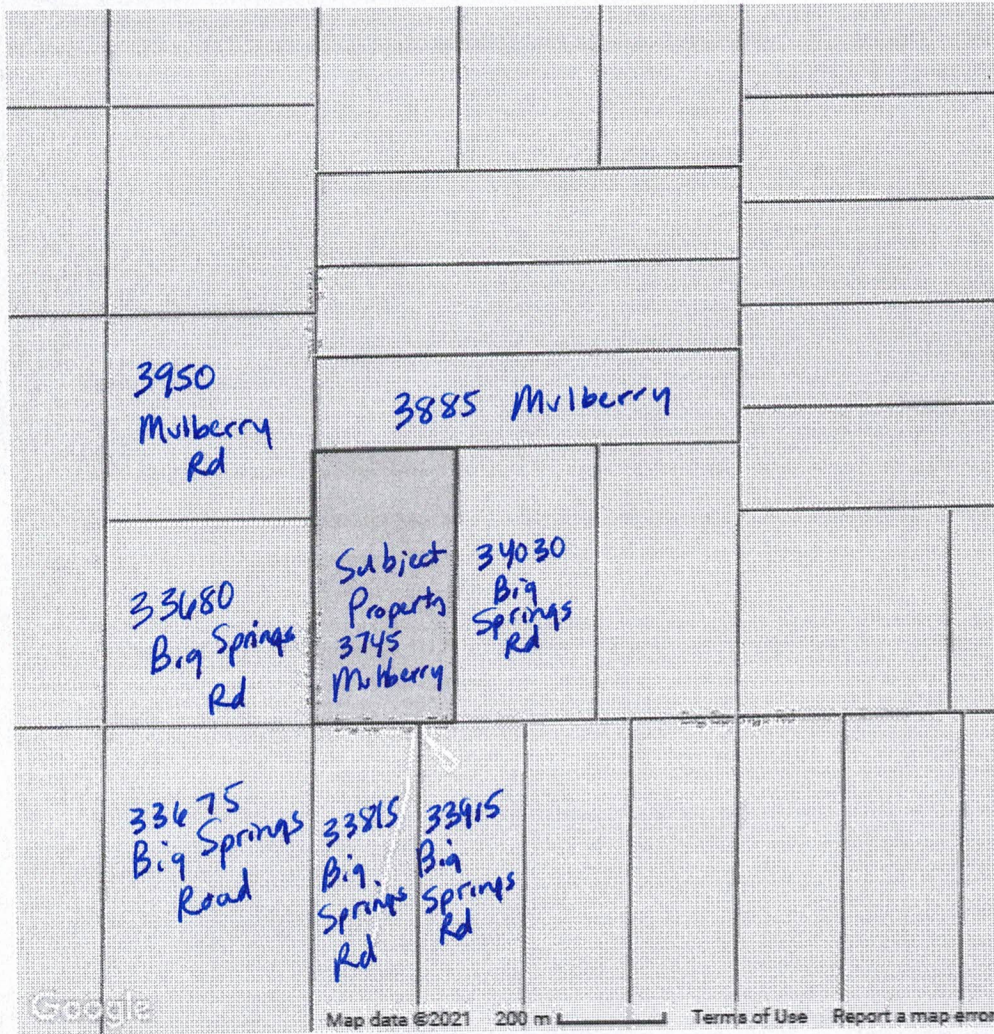 3950
Mulberry
Rd
3885 Mulberry
Subject
Property
3745
Mulberry
34030
Big
Springs
Rd
33680
Big Springs
Rd
33675
Big Springs
Road
33815
Big
Springs
Rd
33915
Big
Springs
Rd
Google
Map data ©2021 200 m Terms of Use Report a map error